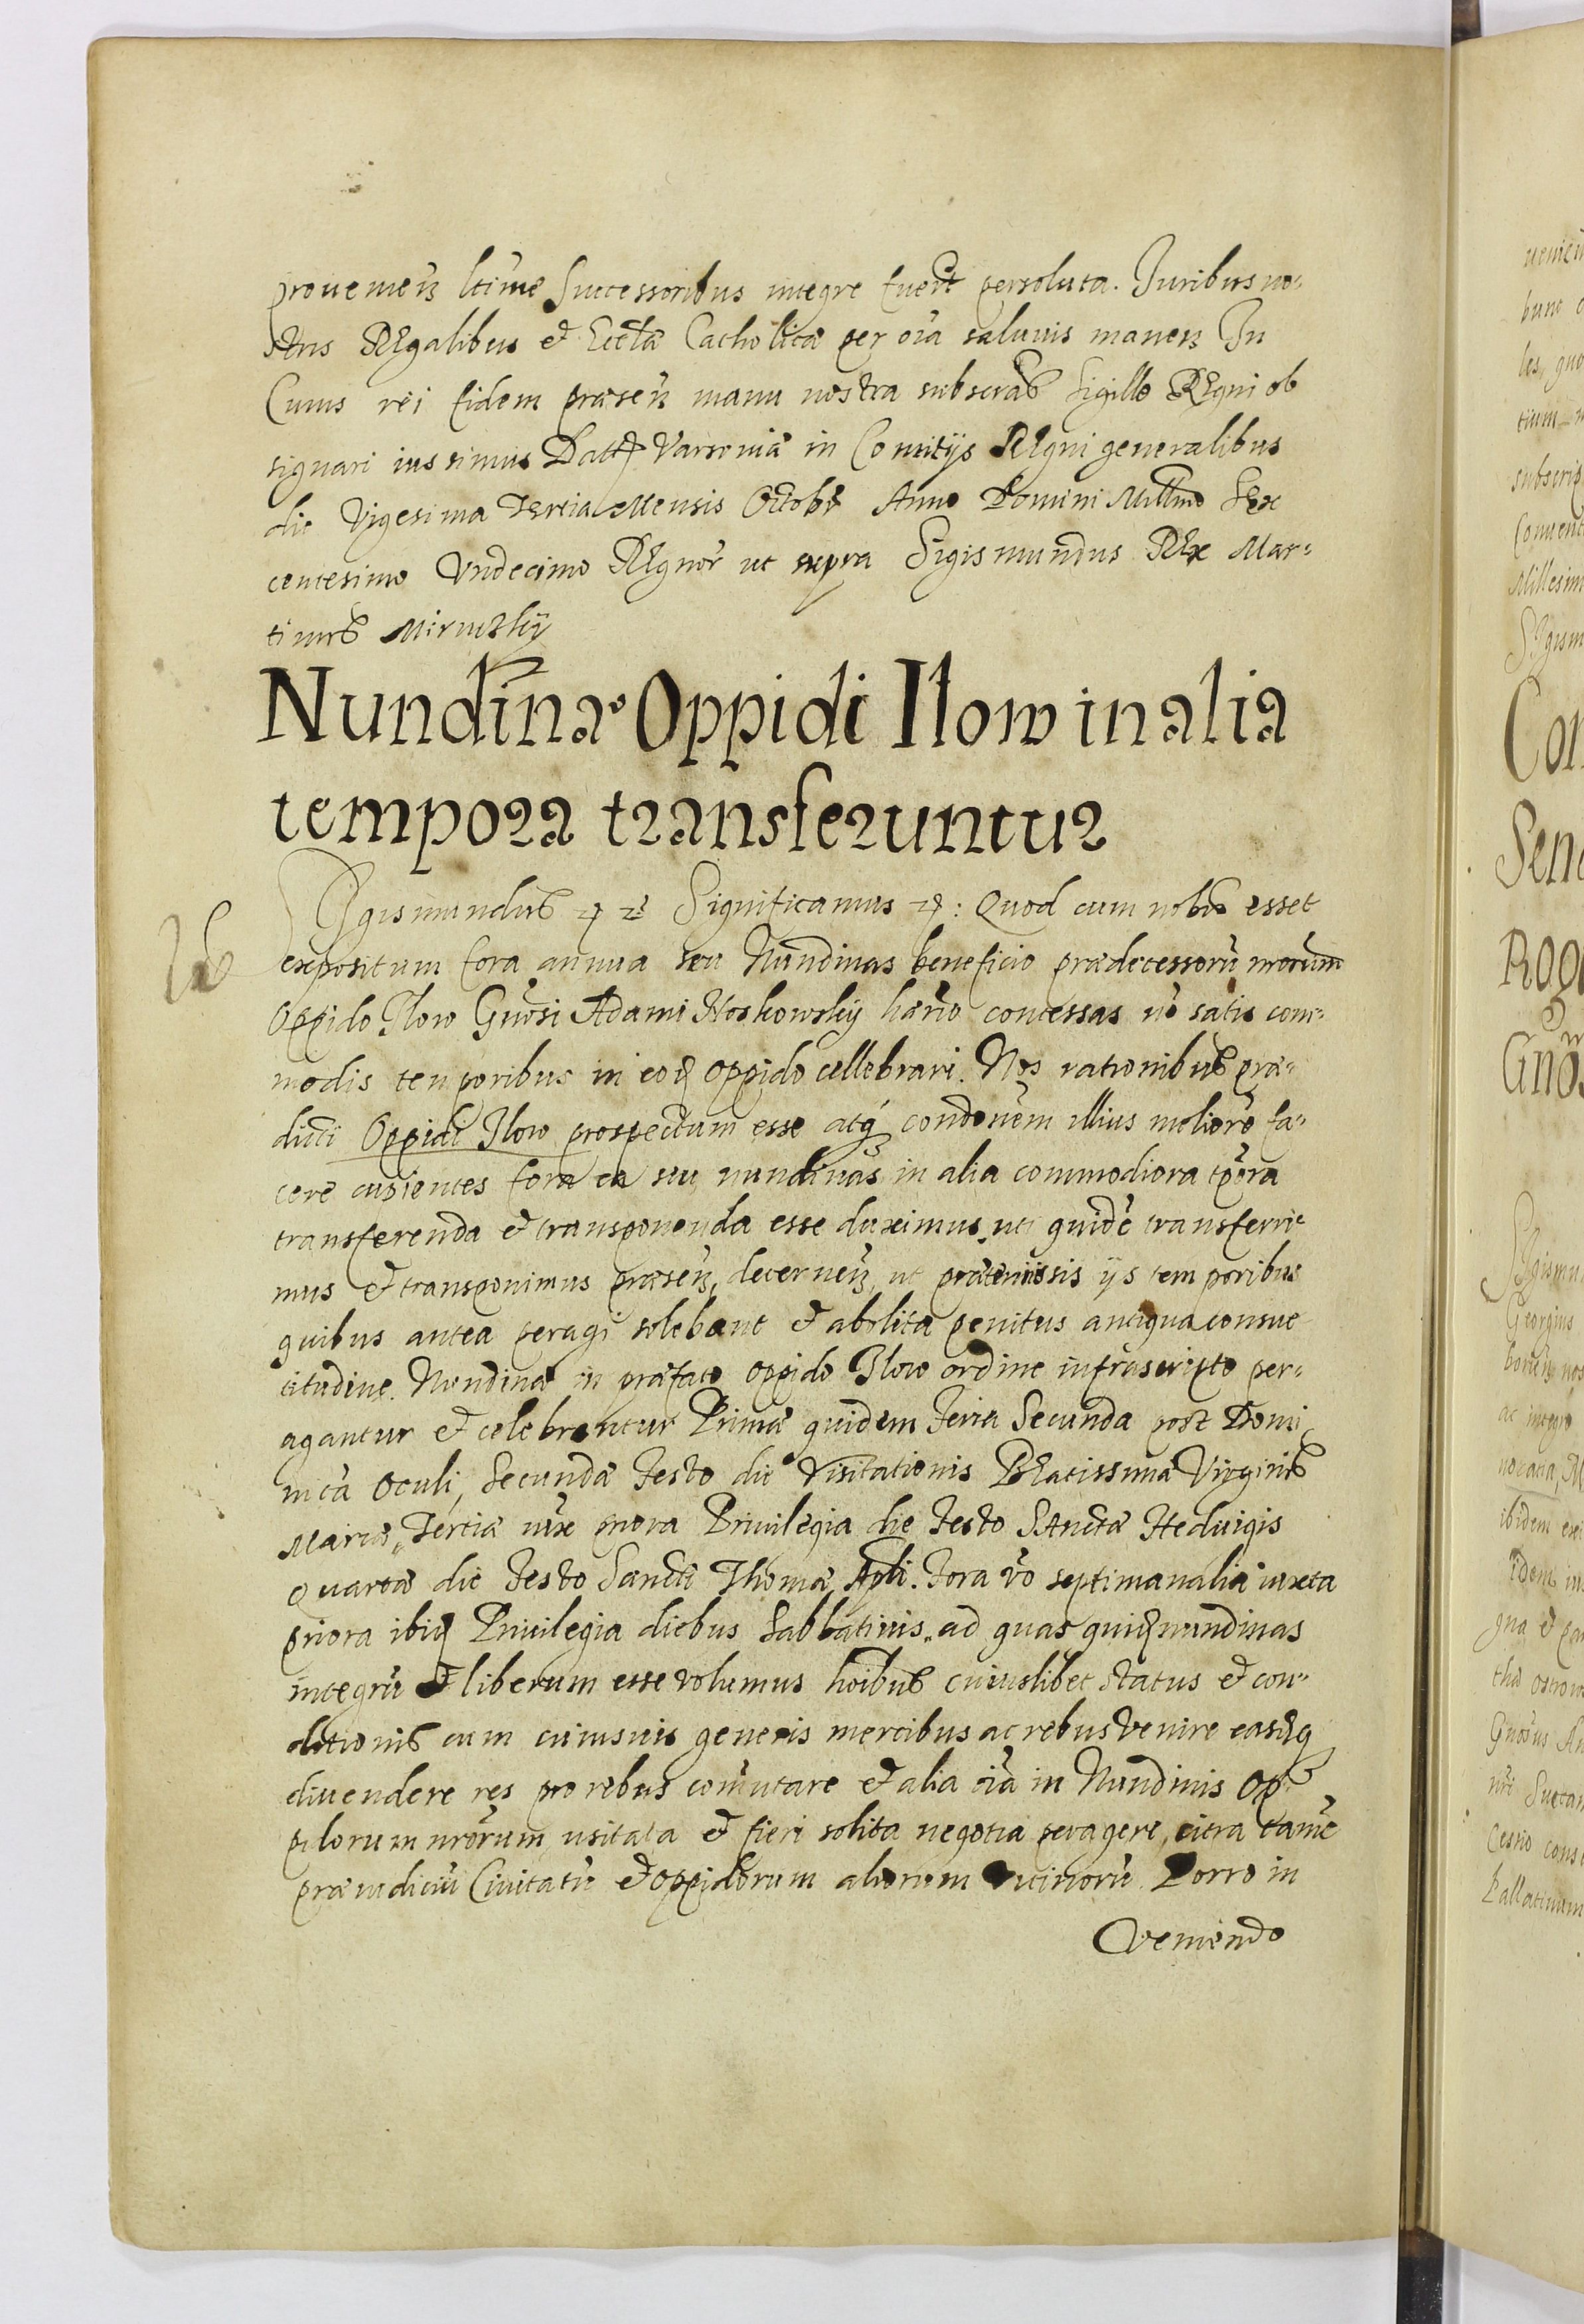 provenien ltime Successoribus integre fuerit persoluta. Juribus no-
stris Regalibus et Eccla Catholicæ per oia salvis manen In
Cuius rei fidem præsen manu nostra subscrab Sigillo Regni ob
signari iussimus Datt Varsoviæ in Comitijs Regni generalibus
die Vigesima Tertia Mensis Octobr Anno Domini Millmo Sex
centesimo Undecimo Regnor ut supra Sigismundus Rex Mar-
tinus
Nundinæ Oppidi Ilow in alia
tempora transferuntur
Sigismundus Significamus : Quod cum nobis esset
expositum fora annua seu Nundinas beneficio prædecessorū nrorum
Oppido Ilow Gnosi Adami Noskowsky hacno concessas nō satis com-
modis temporibus in eod oppido cellebrari. Nos rationibus præ-
dicti Oppidi Ilow prospectum esse atq condonem illius meliorē fa-
cere cupientes fora ea seu nundinas in alia commodiora tpora
transferenda et transponenda esse duximus, uti quidē transferri-
mus et transponimus præsen, decernen, ut prætermissis ijs temporibus
quibus antea peragi solebant et abolita penitus antiqua consue
titudine. Nundinæ in præfato oppido Ilow ordine infrascripto per-
agantur et celebrentur Primæ quidem feria Secunda post Domi
nicā Oculi, Secundæ festo die Visitationis Beatissimæ Virginis
Mariæ, Tertiæ iux priora Privilegia die festo Sanctæ Hedvigis
Quartæ die festo Sancti Thomæ Apli. Fora vo septimanalia iuxta
priora ibid Privilegia diebus Sabbativis, ad quas quid nundinas
integrū et liberum esse volumus hoibus cuiuslibet status et con-
ditionis cum cuiusvis generis mercibus ac rebus venire easdq
divendere res pro rebus comutare et alia oia in Nundinis Op-
pidorum nrorum usitata et fieri solita negotia peragere, citra tamē
præiudiciū Civitatū et Oppidorum aliorum vicinorū. Porro in
veniendo